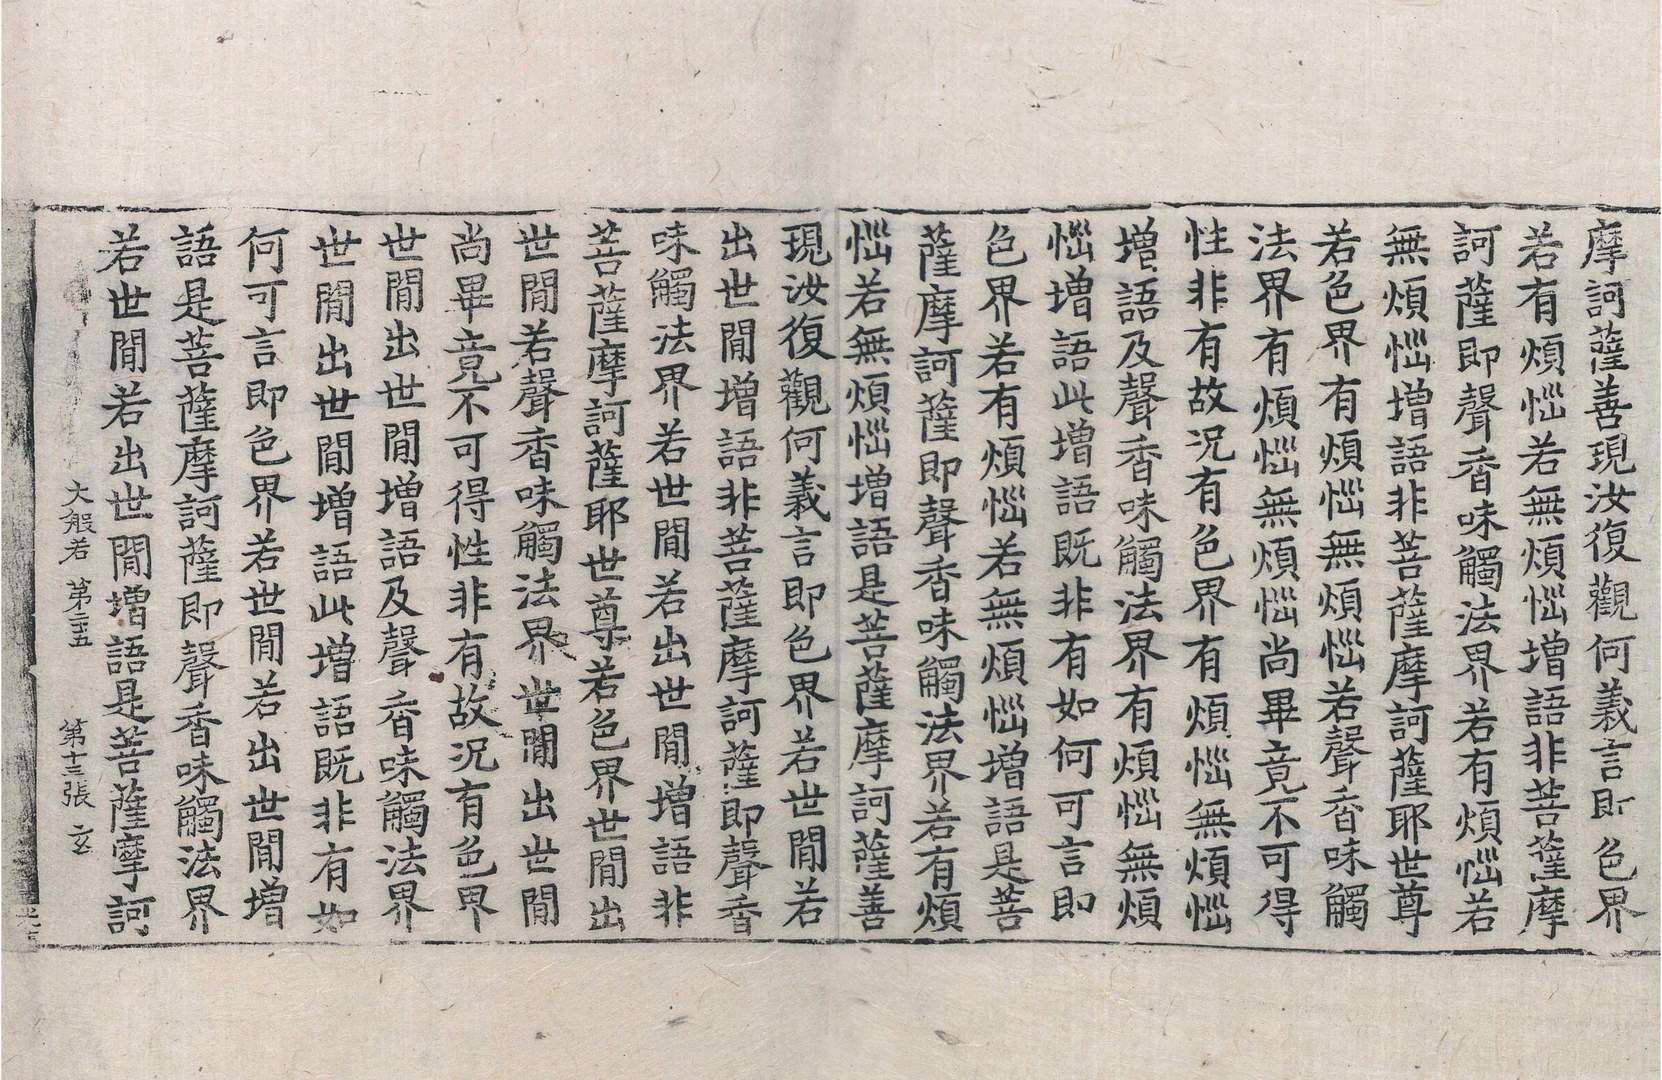 摩訶薩善現汝復觀何義言即色界
若有煩惱若無煩惱增語非菩薩摩
訶薩即聲香味觸法界若有煩惱若
無煩惱增語非菩薩摩訶薩耶世尊
若色界有煩惱無煩惱若聲香味觸
法界有煩惱無煩惱尚畢竟不可得
性非有故況有色界有煩惱無煩惱
增語及聲香味觸法界有煩惱無煩
惱增語此增語既非有如何可言即
色界若有煩惱若無煩惱增語是菩
薩摩訶薩即聲香味觸法界若有煩
惱若無煩惱增語是菩薩摩訶薩善
現汝復觀何義言即色界若世間若
出世間增語非菩薩摩訶薩即聲香
味觸法界若世間若出世間增語非
菩薩摩訶薩耶世尊若色界世間出
世間若聲香味觸法界世間出世間
尚畢竟不可得性非有故況有色界
世間出世間增語及聲香味觸法界
世間出世間增語此增語既非有如
何可言即色界若世間若出世間增
語是菩薩摩訶薩即聲香味觸法界
若世間若出世間增語是菩薩摩訶
大般若 第三五 第十三張 玄